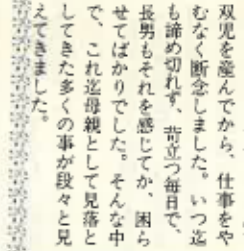 双児を産んでから、仕事をや
むなく断念しました。いつ迄
も諦め切れず、苛立つ毎日で、
長男もそれを感じてか、困ら
せてばかりでした。そんな中
で、これ迄母親として見落と
してきた多くの事が段々と見
えてきました。